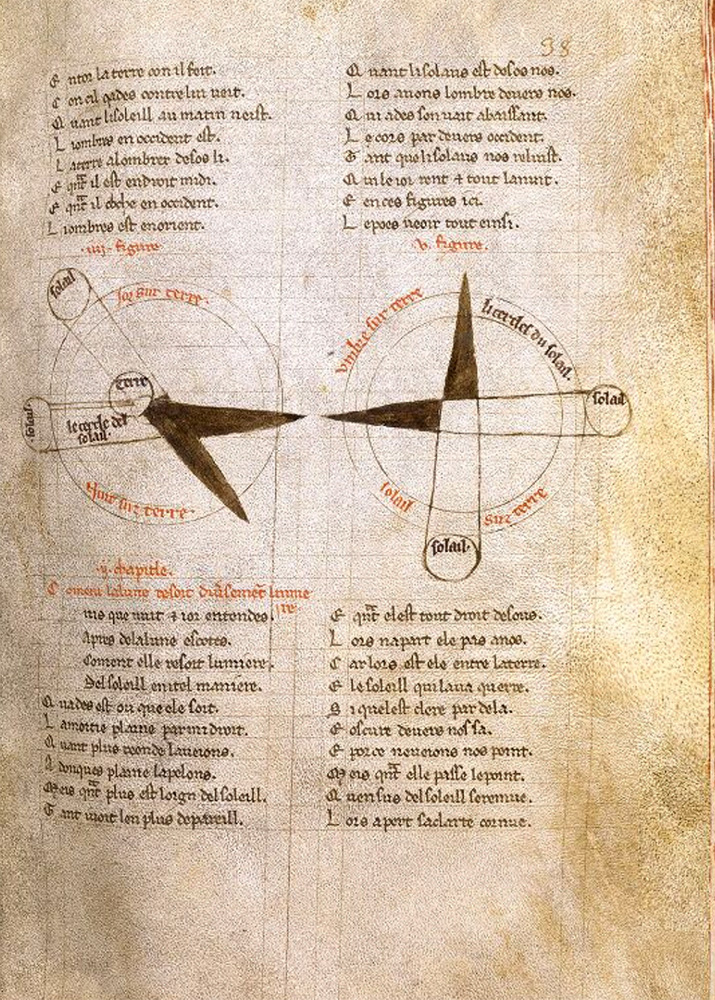 38
E ntor la terre con il feit.
C on cil qades contre lui veit.
Q uant li soleill au matin neist.
L iombres en occident est.
L a terre a lombrer desos li.
E qnt il est endroit midi.
E qnt il coche en occident.
L iombres est en orient.
.iiij. figure
Q uant li solaus est desos nos.
L ors auons lombre deuers nos.
Q ui ades son uait abaissant.
L e cors par deuers occident.
T ant que li solaus nos reluist.
Q ui le ior rent & tout la nuit.
E en ces figures ici.
L e poes ueoir tout einsi.
.v. figure.
solail
ior sur terre.
terre
solail
le cercle del
solail.
nuit sur terre.
vmbre sur terre
li cercles du solail.
solail
solail
sur terre
solail.
.ij. chapitle.
C oment la lune resoit diusemet lumie
re
uis que nuit & ior entendes.
Apres de la lune escotes.
Coment elle resoit lumiere.
Del soleill en itel maniere.
Q uades est ou que ele soit.
L amoitie plaine parmi droit.
Q uant plus reonde la ueions.
A donques plaine lapelons.
M eis qnt plus est loign del soleill.
T ant uoit len plus de pareill.
E qnt el est tout droit desous.
L ors napart ele pas anos.
C ar lors est ele entre la terre.
E le soleill qui la ua querre.
S i quel est clere par dela.
E oscure deuers nos sa.
E por ce ne ueions nos point.
M eis qnt elle passe le point.
Q uensus del soleill se remue.
L ors apert sa clarte cornue.